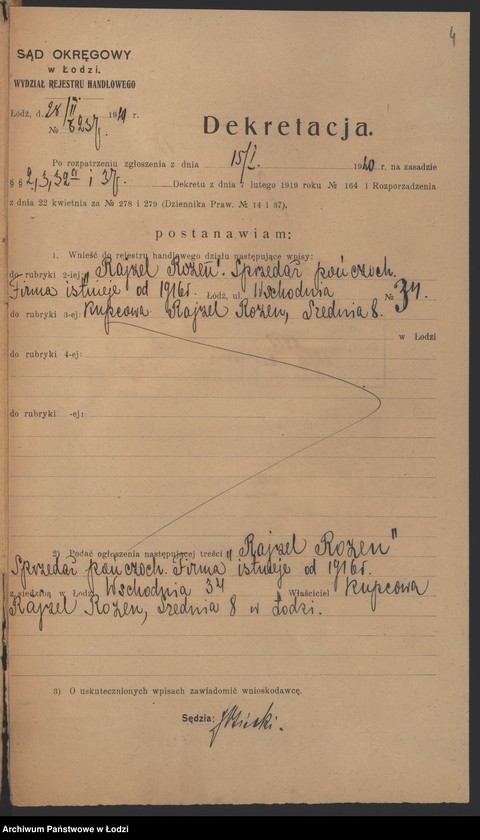 4
SĄD OKRĘGOWY
w Łodzi.
WYDZIAŁ REJESTRU HANDLOWEGO
Łódź, d. 28/II 1920 r.
№ 8237.
Dekretacja.
Po rozpatrzeniu zgłoszenia z dnia 15/I. 1920 r. na zasadzie
§ § 2, 3, 32a i 37. Dekretu z dnia 7 lutego 1919 roku № 164 i Rozporządzenia
z dnia 22 kwietnia za № 278 i 279 (Dziennika Praw. № 14 i 37).
postanawiam:
1. Wnieść do rejestru handlowego działu następujące wpisy:
do rubryki 2-iej: „Rajzel Rozen". Sprzedaż pończoch.
Firma istnieje od 1916 r. Łódź, ul. Wschodnia № 34.
do rubryki 3-ej: Kupcowa Rajzel Rozen, Średnia 8.
w Łodzi
do rubryki 4-ej:
do rubryki -ej:
2) Podać ogłoszenia następującej treści „Rajzel Rozen"
Sprzedaż pończoch. Firma istnieje od 1916 r.
z siedzibą w Łodzi Wschodnia 34 Właściciel Kupcowa
Rajzel Rozen, Średnia 8 w Łodzi.
3) O uskutecznionych wpisach zawiadomić wnioskodawcę.
Sędzia:
Archiwum Państwowe w Łodzi